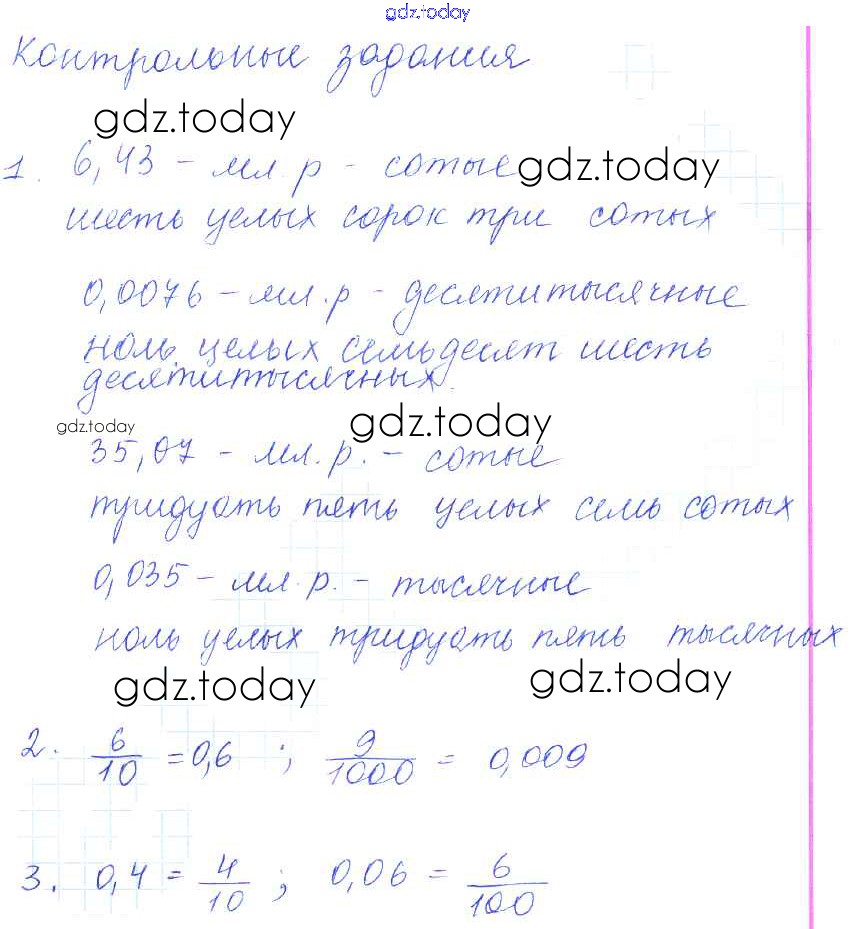 gdz.today
Контрольные задания
gdz.today
1. 6,43 – мл. р – сотые gdz.today
шесть целых сорок три сотых
0,0076 – мл. р – десятитысячные
ноль целых семьдесят шесть
десятитысячных.
gdz.today gdz.today
35,07 – мл. р. – сотые
тридцать пять целых семь сотых
0,035 – мл. р. – тысячные
ноль целых тридцать пять тысячных
gdz.today gdz.today
2. 6/10 = 0,6 ; 9/1000 = 0,009
3. 0,4 = 4/10 ; 0,06 = 6/100